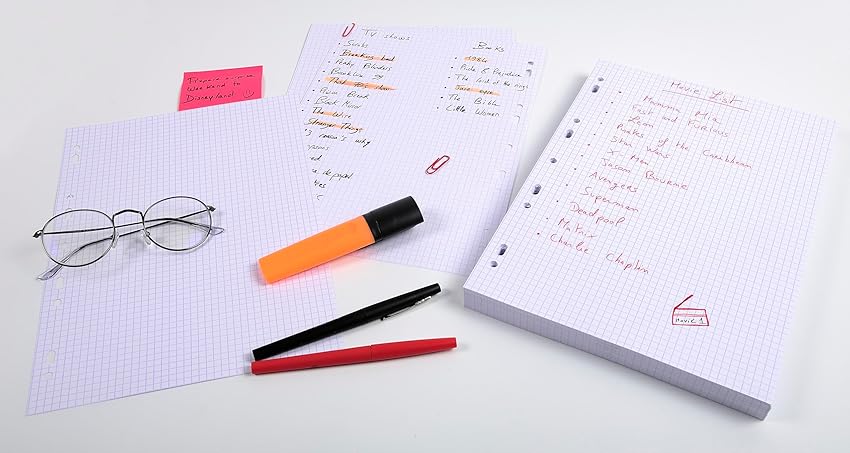 Prepare surprise
Weekend to
Disneyland
TV shows
Scrubs
Breaking bad
Peaky Blinders
Brooklin 99
That 70s show
Prison Break
Black Mirror
The Wire
Stranger Things
13 reason's why
de papel
Books
1984
Pride & Prejudice
The Lord of the rings
Jane eyre
The Bible
Little Women
Movie List
Mamma Mia
Fast and Furious
Leon
Pirates of the Caribbean
Star Wars
X Men
Jason Bourne
Avengers
Superman
Deadpool
Matrix
Charlie Chaplin
Movie 1